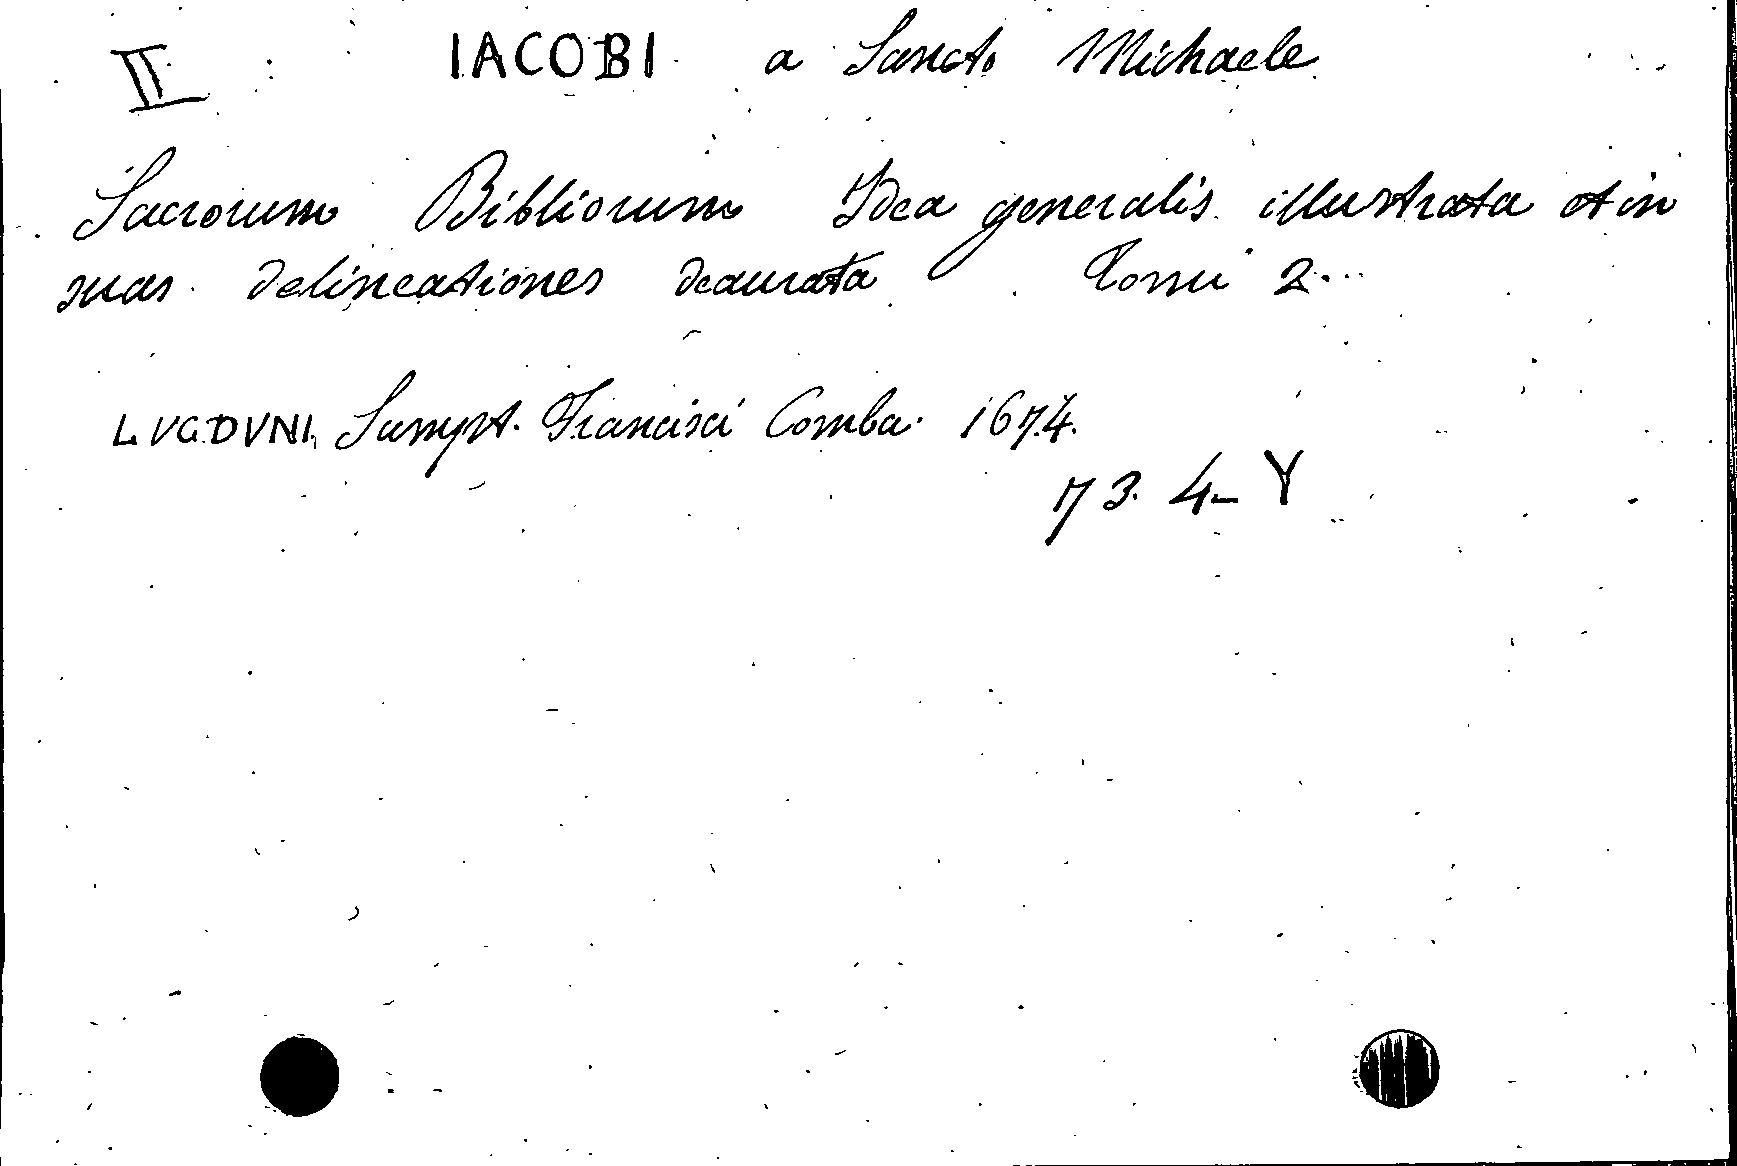 II IACOBI a Sancto Michaele
Sacrorum Bibliorum Idea generalis illustrata et in
suas delineationes deaurata Tomi 2...
LVGDVNI, Sumpt. Francisci Comba. 1674.
73. 4- Y